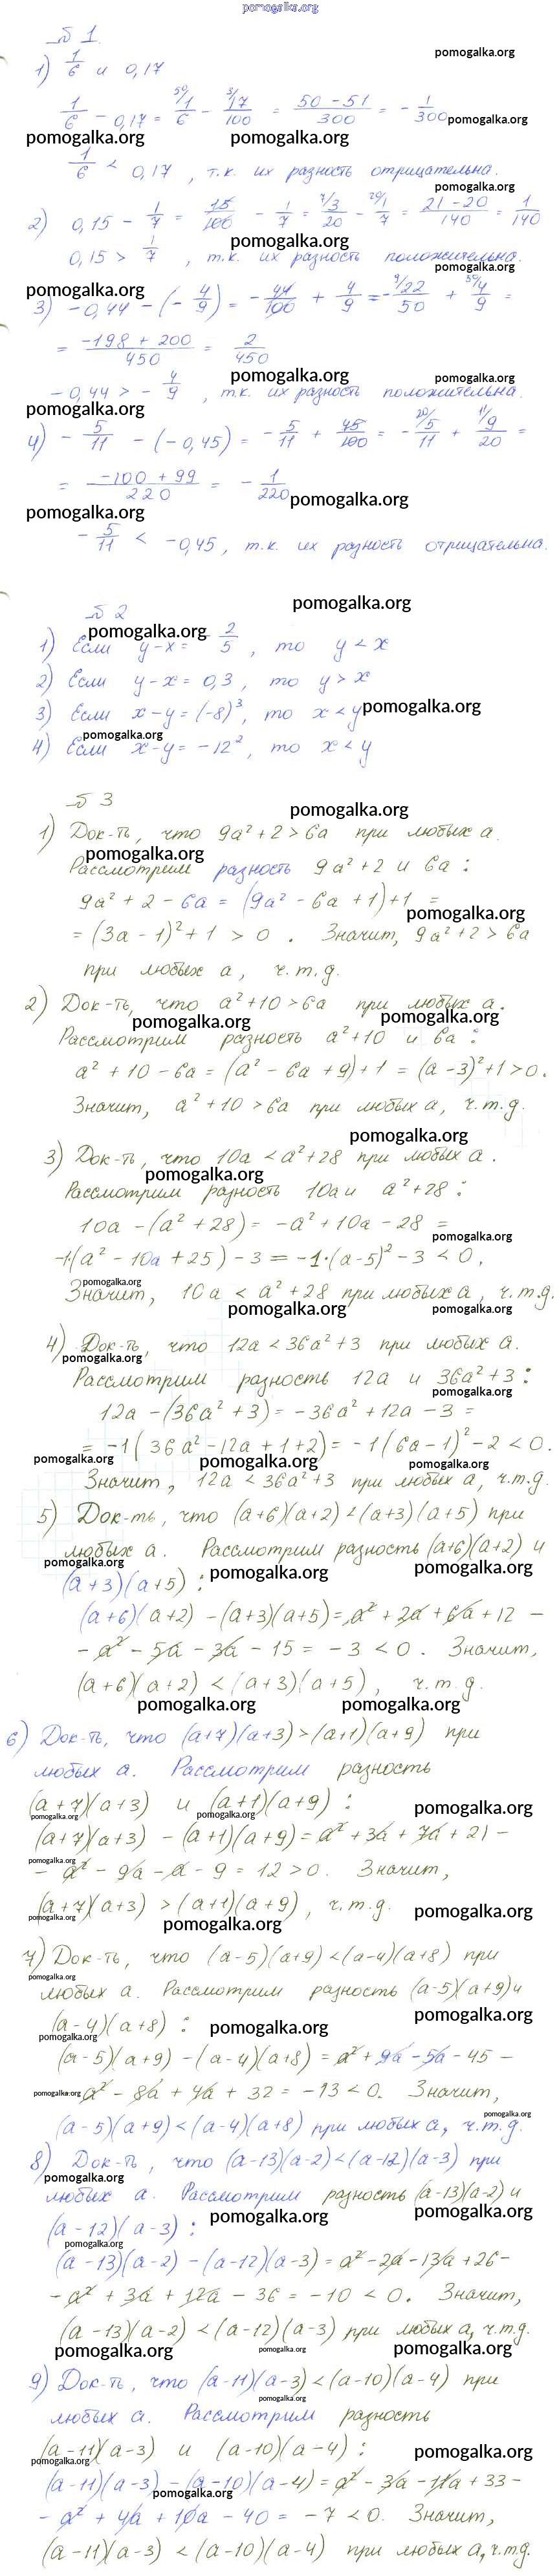 pomogalka.org
№ 1
pomogalka.org
1) 1/6 и 0,17
1/6 - 0,17 = 50/1/6 - 3/17/100 = (50 - 51)/300 = - 1/300 pomogalka.org
pomogalka.org pomogalka.org
1/6 < 0,17, т.к. их разность отрицательна.
pomogalka.org
2) 0,15 - 1/7 = 15/100 - 1/7 = 7/3/20 - 20/1/7 = (21 - 20)/140 = 1/140
pomogalka.org
0,15 > 1/7, т.к. их разность положительна.
pomogalka.org
pomogalka.org
3) -0,44 - (- 4/9) = - 44/100 + 4/9 = - 9/22/50 + 50/4/9 =
= (-198 + 200)/450 = 2/450
pomogalka.org pomogalka.org
-0,44 > - 4/9, т.к. их разность положительна.
pomogalka.org
4) - 5/11 - (-0,45) = - 5/11 + 45/100 = - 20/5/11 + 11/9/20 =
= (-100 + 99)/220 = - 1/220
pomogalka.org
pomogalka.org
- 5/11 < -0,45, т.к. их разность отрицательна.
pomogalka.org
№ 2
pomogalka.org
1) Если y-x = - 2/5, то y < x
2) Если y-x = 0,3, то y > x
3) Если x-y = (-8)³, то x < y pomogalka.org
pomogalka.org
4) Если x-y = -12², то x < y
№ 3
pomogalka.org
1) Док-ть, что 9a²+2 > 6a при любых a.
pomogalka.org
Рассмотрим разность 9a²+2 и 6a:
9a² + 2 - 6a = (9a² - 6a + 1) + 1 =
pomogalka.org
= (3a - 1)² + 1 > 0. Значит, 9a²+2 > 6a
при любых a, ч.т.д.
2) Док-ть, что a²+10 > 6a при любых a.
pomogalka.org pomogalka.org
Рассмотрим разность a²+10 и 6a:
a² + 10 - 6a = (a² - 6a + 9) + 1 = (a - 3)² + 1 > 0.
Значит, a²+10 > 6a при любых a, ч.т.д.
pomogalka.org
3) Док-ть, что 10a < a²+28 при любых a.
pomogalka.org
Рассмотрим разность 10a и a²+28:
10a - (a² + 28) = -a² + 10a - 28 =
pomogalka.org
-1(a² - 10a + 25) - 3 = -1·(a-5)² - 3 < 0,
pomogalka.org
Значит, 10a < a²+28 при любых a, ч.т.д.
pomogalka.org pomogalka.org
4) Док-ть, что 12a < 36a²+3 при любых a.
pomogalka.org
Рассмотрим разность 12a и 36a²+3:
pomogalka.org
12a - (36a²+3) = -36a² + 12a - 3 =
= -1(36a² - 12a + 1 + 2) = -1(6a - 1)² - 2 < 0.
pomogalka.org pomogalka.org pomogalka.org
Значит, 12a < 36a²+3 при любых a, ч.т.д.
5) Док-ть, что (a+6)(a+2) < (a+3)(a+5) при
любых a. Рассмотрим разность (a+6)(a+2) и
pomogalka.org pomogalka.org pomogalka.org
(a+3)(a+5):
(a+6)(a+2) - (a+3)(a+5) = a² + 2a + 6a + 12 -
- a² - 5a - 3a - 15 = -3 < 0. Значит,
(a+6)(a+2) < (a+3)(a+5), ч.т.д.
pomogalka.org pomogalka.org
6) Док-ть, что (a+7)(a+3) > (a+1)(a+9) при
любых a. Рассмотрим разность
(a+7)(a+3) и (a+1)(a+9):
pomogalka.org pomogalka.org pomogalka.org
(a+7)(a+3) - (a+1)(a+9) = a² + 3a + 7a + 21 -
pomogalka.org
- a² - 9a - a - 9 = 12 > 0. Значит,
(a+7)(a+3) > (a+1)(a+9), ч.т.д.
pomogalka.org pomogalka.org pomogalka.org
7) Док-ть, что (a-5)(a+9) < (a-4)(a+8) при
pomogalka.org
любых a. Рассмотрим разность (a-5)(a+9) и
pomogalka.org
(a-4)(a+8):
pomogalka.org pomogalka.org
(a-5)(a+9) - (a-4)(a+8) = a² + 9a - 5a - 45 -
pomogalka.org
- a² - 8a + 4a + 32 = -13 < 0. Значит,
pomogalka.org
(a-5)(a+9) < (a-4)(a+8) при любых a, ч.т.д.
8) Док-ть, что (a-13)(a-2) < (a-12)(a-3) при
pomogalka.org
любых a. Рассмотрим разность (a-13)(a-2) и
pomogalka.org pomogalka.org
(a-12)(a-3):
pomogalka.org
(a-13)(a-2) - (a-12)(a-3) = a² - 2a - 13a + 26 -
- a² + 3a + 12a - 36 = -10 < 0. Значит,
(a-13)(a-2) < (a-12)(a-3) при любых a, ч.т.д.
pomogalka.org pomogalka.org pomogalka.org
9) Док-ть, что (a-11)(a-3) < (a-10)(a-4) при
pomogalka.org
любых a. Рассмотрим разность
(a-11)(a-3) и (a-10)(a-4):
pomogalka.org pomogalka.org
(a-11)(a-3) - (a-10)(a-4) = a² - 3a - 11a + 33 -
pomogalka.org
- a² + 4a + 10a - 40 = -7 < 0. Значит,
(a-11)(a-3) < (a-10)(a-4) при любых a, ч.т.д.